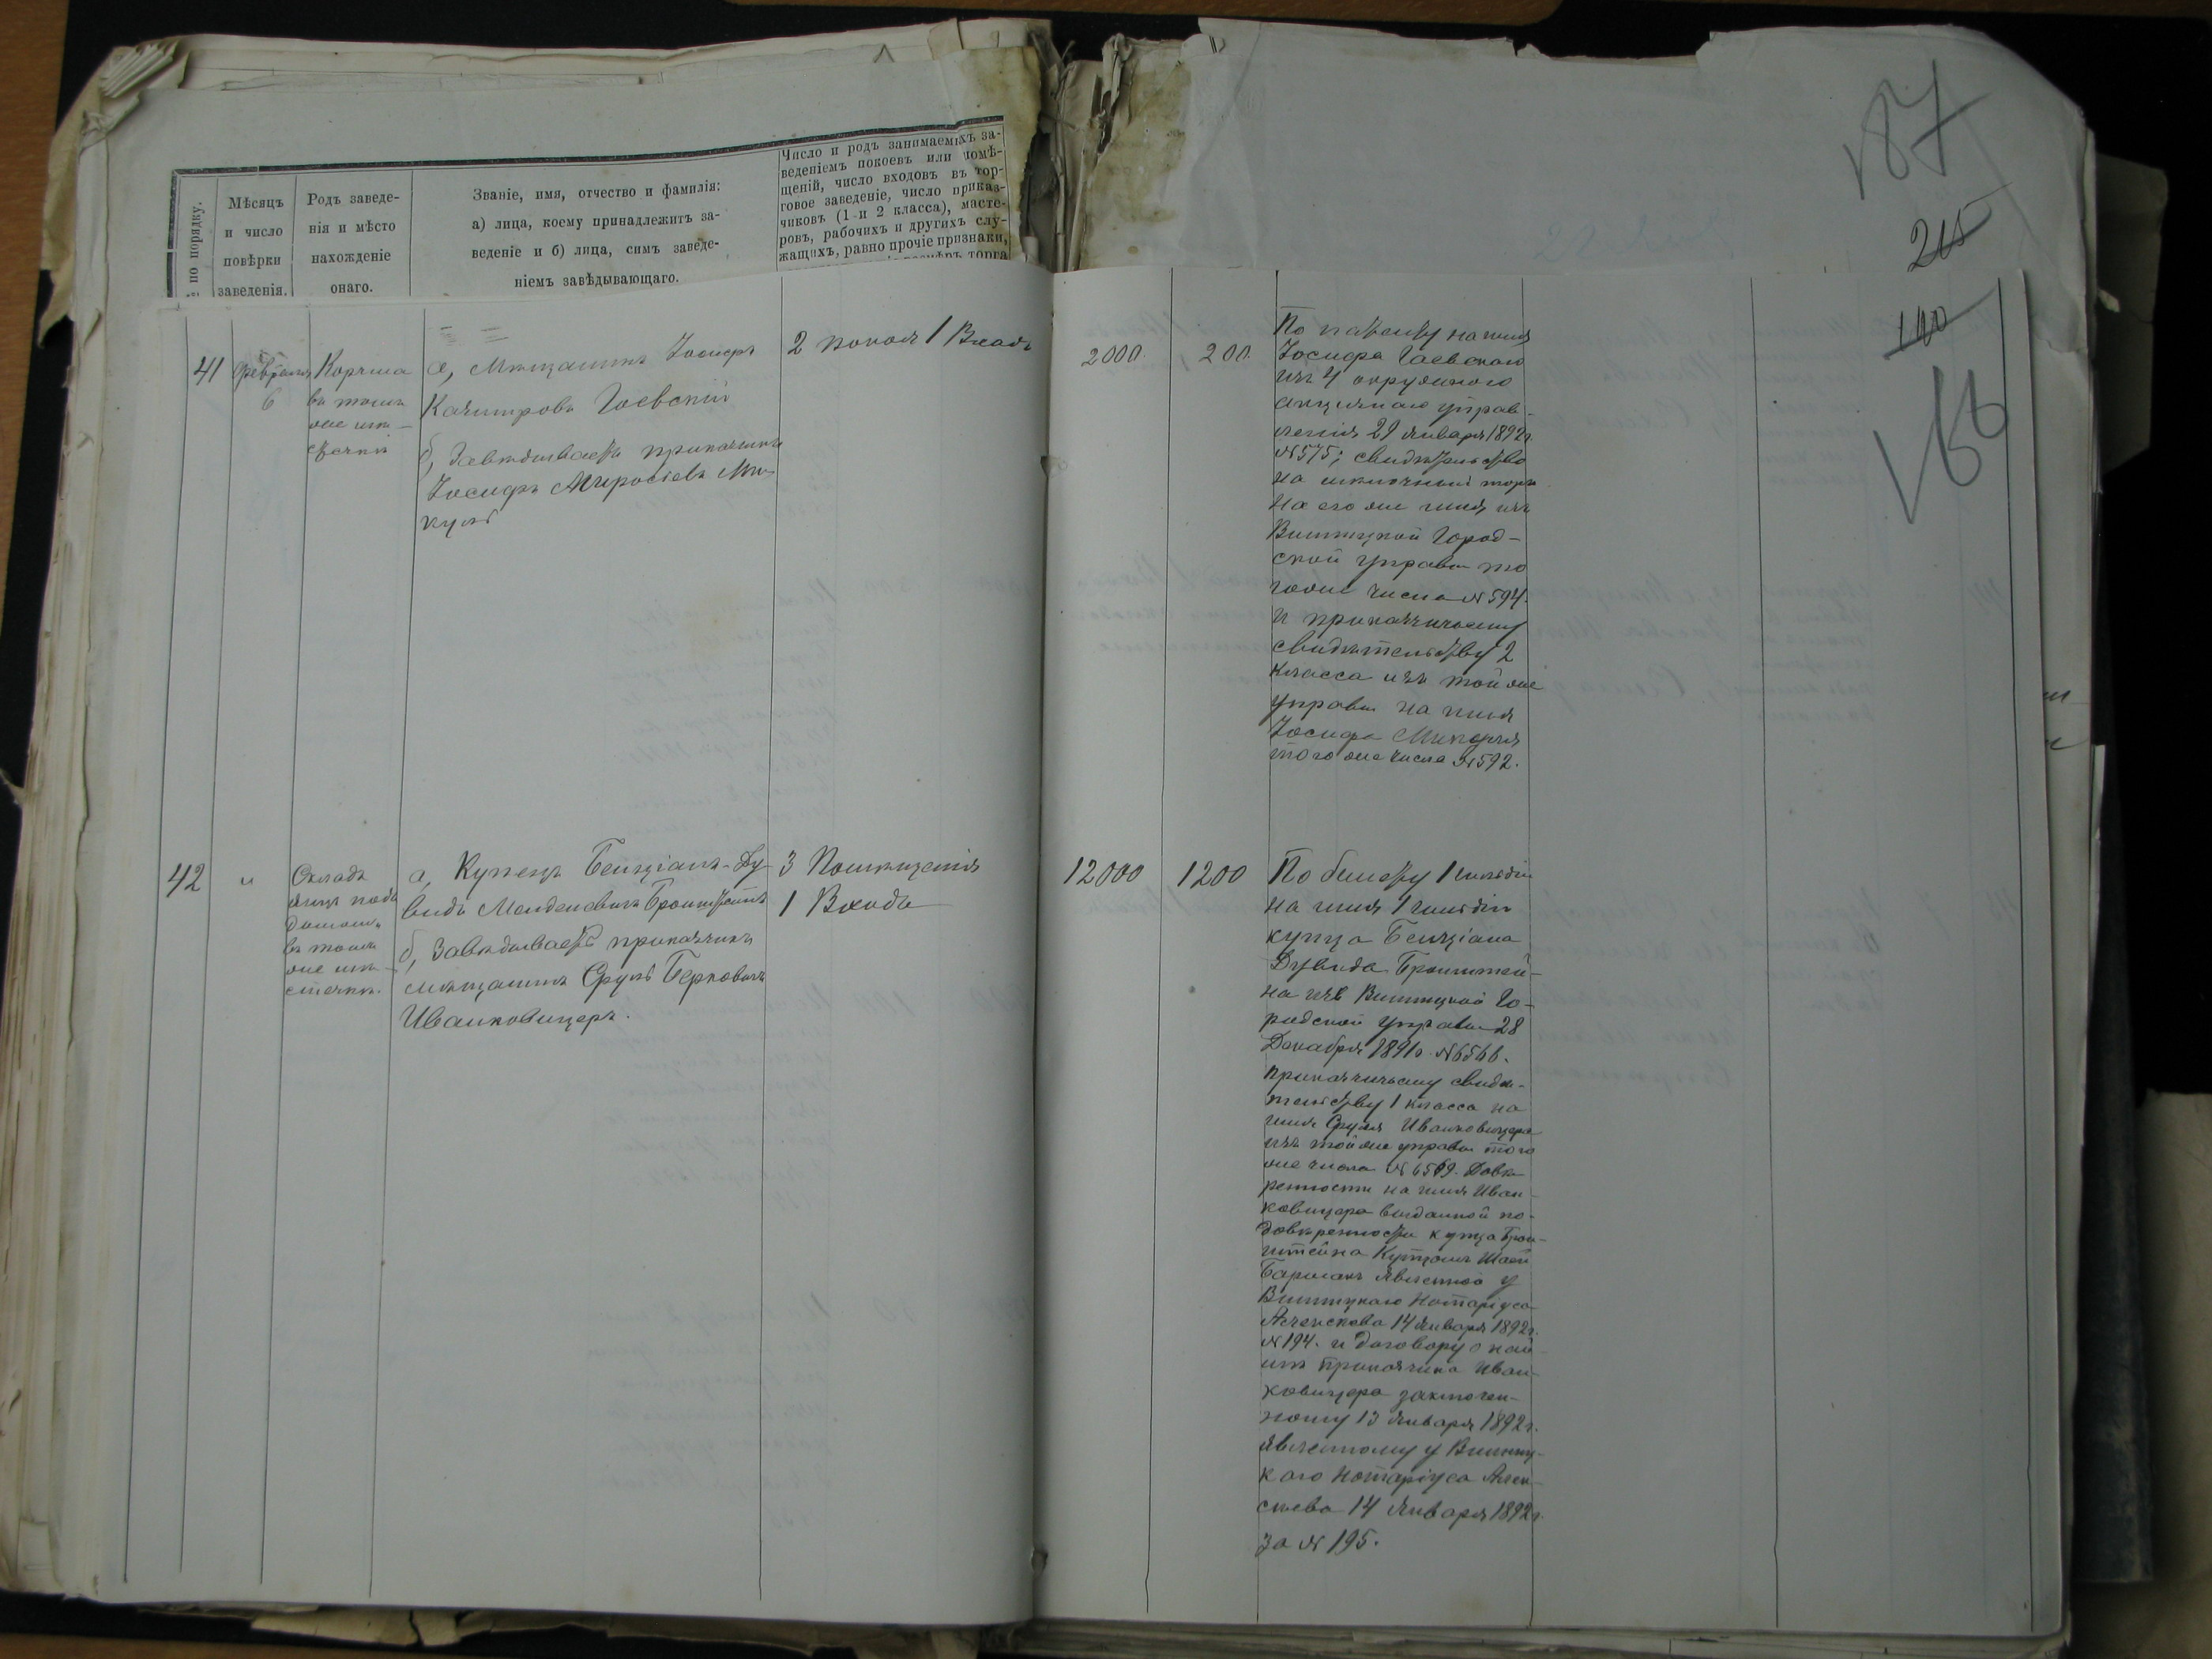 по порядку.
Мѣсяцъ
и число
повѣрки
заведенія.
Родъ заведе-
нія и мѣсто
нахожденіе
онаго.
Званіе, имя, отчество и фамилія:
а) лица, коему принадлежитъ за-
веденіе и б) лица, симъ заведе-
ніемъ завѣдывающаго.
Число и родъ занимаемыхъ за-
веденіемъ покоевъ или помѣ-
щеній, число входовъ въ тор-
говое заведеніе, число приказ-
чиковъ (1 и 2 класса), масте-
ровъ, рабочихъ и другихъ слу-
жащихъ, равно прочіе признаки,
торга
41
Февраля
6
Корчма
въ томъ
же мѣ-
стечкѣ
а, Мѣщанинъ Іосифъ
Казимровъ Гаевскій
б, Завѣдываетъ приказчикъ
Іосифъ Амвросіевъ Ми-
куль
2 покоя 1 Входъ
42
"
Складъ
яицъ подъ
домомъ
въ томъ
же мѣ-
стечкѣ.
а, Купецъ Бенціанъ-Ду-
видъ Менделевичъ Бронштейнъ
б, Завѣдываетъ приказчикъ
мѣщанинъ Сруль Берковичъ
Иванковицеръ.
3 Помѣщенія
1 Входъ
187
215
110
166
2000.
200.
По патенту на имя
Іосифа Гаевскаго
изъ 4 окружного
акцизнаго управ-
ленія 29 Января 1892 г.
№ 575; свидѣтельство
на мѣлочный торгъ
на его же имя изъ
Винницкой Город-
ской управы то
гоже числа № 594.
и приказчичьему
свидѣтельству 2
класса изъ той же
управы на имя
Іосифа Микуля
того же числа № 592.
12000
1200
По билету 1 гильдіи
на имя 1 гильдіи
купца Бенціана
Дувида Бронштей-
на изъ Винницкой Го-
родской управы 28
Декабря 1891 г. № 6566.
приказчичьему свидѣ-
тельству 1 класса на
имя Сруля Иванковицера
изъ той же управы того
же числа № 6569. Довѣ-
ренности на имя Иван-
ковицера выданной по
довѣренности купца Брон-
штейна Купцомъ
явленной у
Винницкаго Нотаріуса
14 Января 1892 г.
№ 194. и договору о най-
мѣ приказчика Иван-
ковицера заключен-
ному 13 Января 1892 г.
явленному у Винниц-
каго Нотаріуса
14 Января 1892 г.
за № 195.